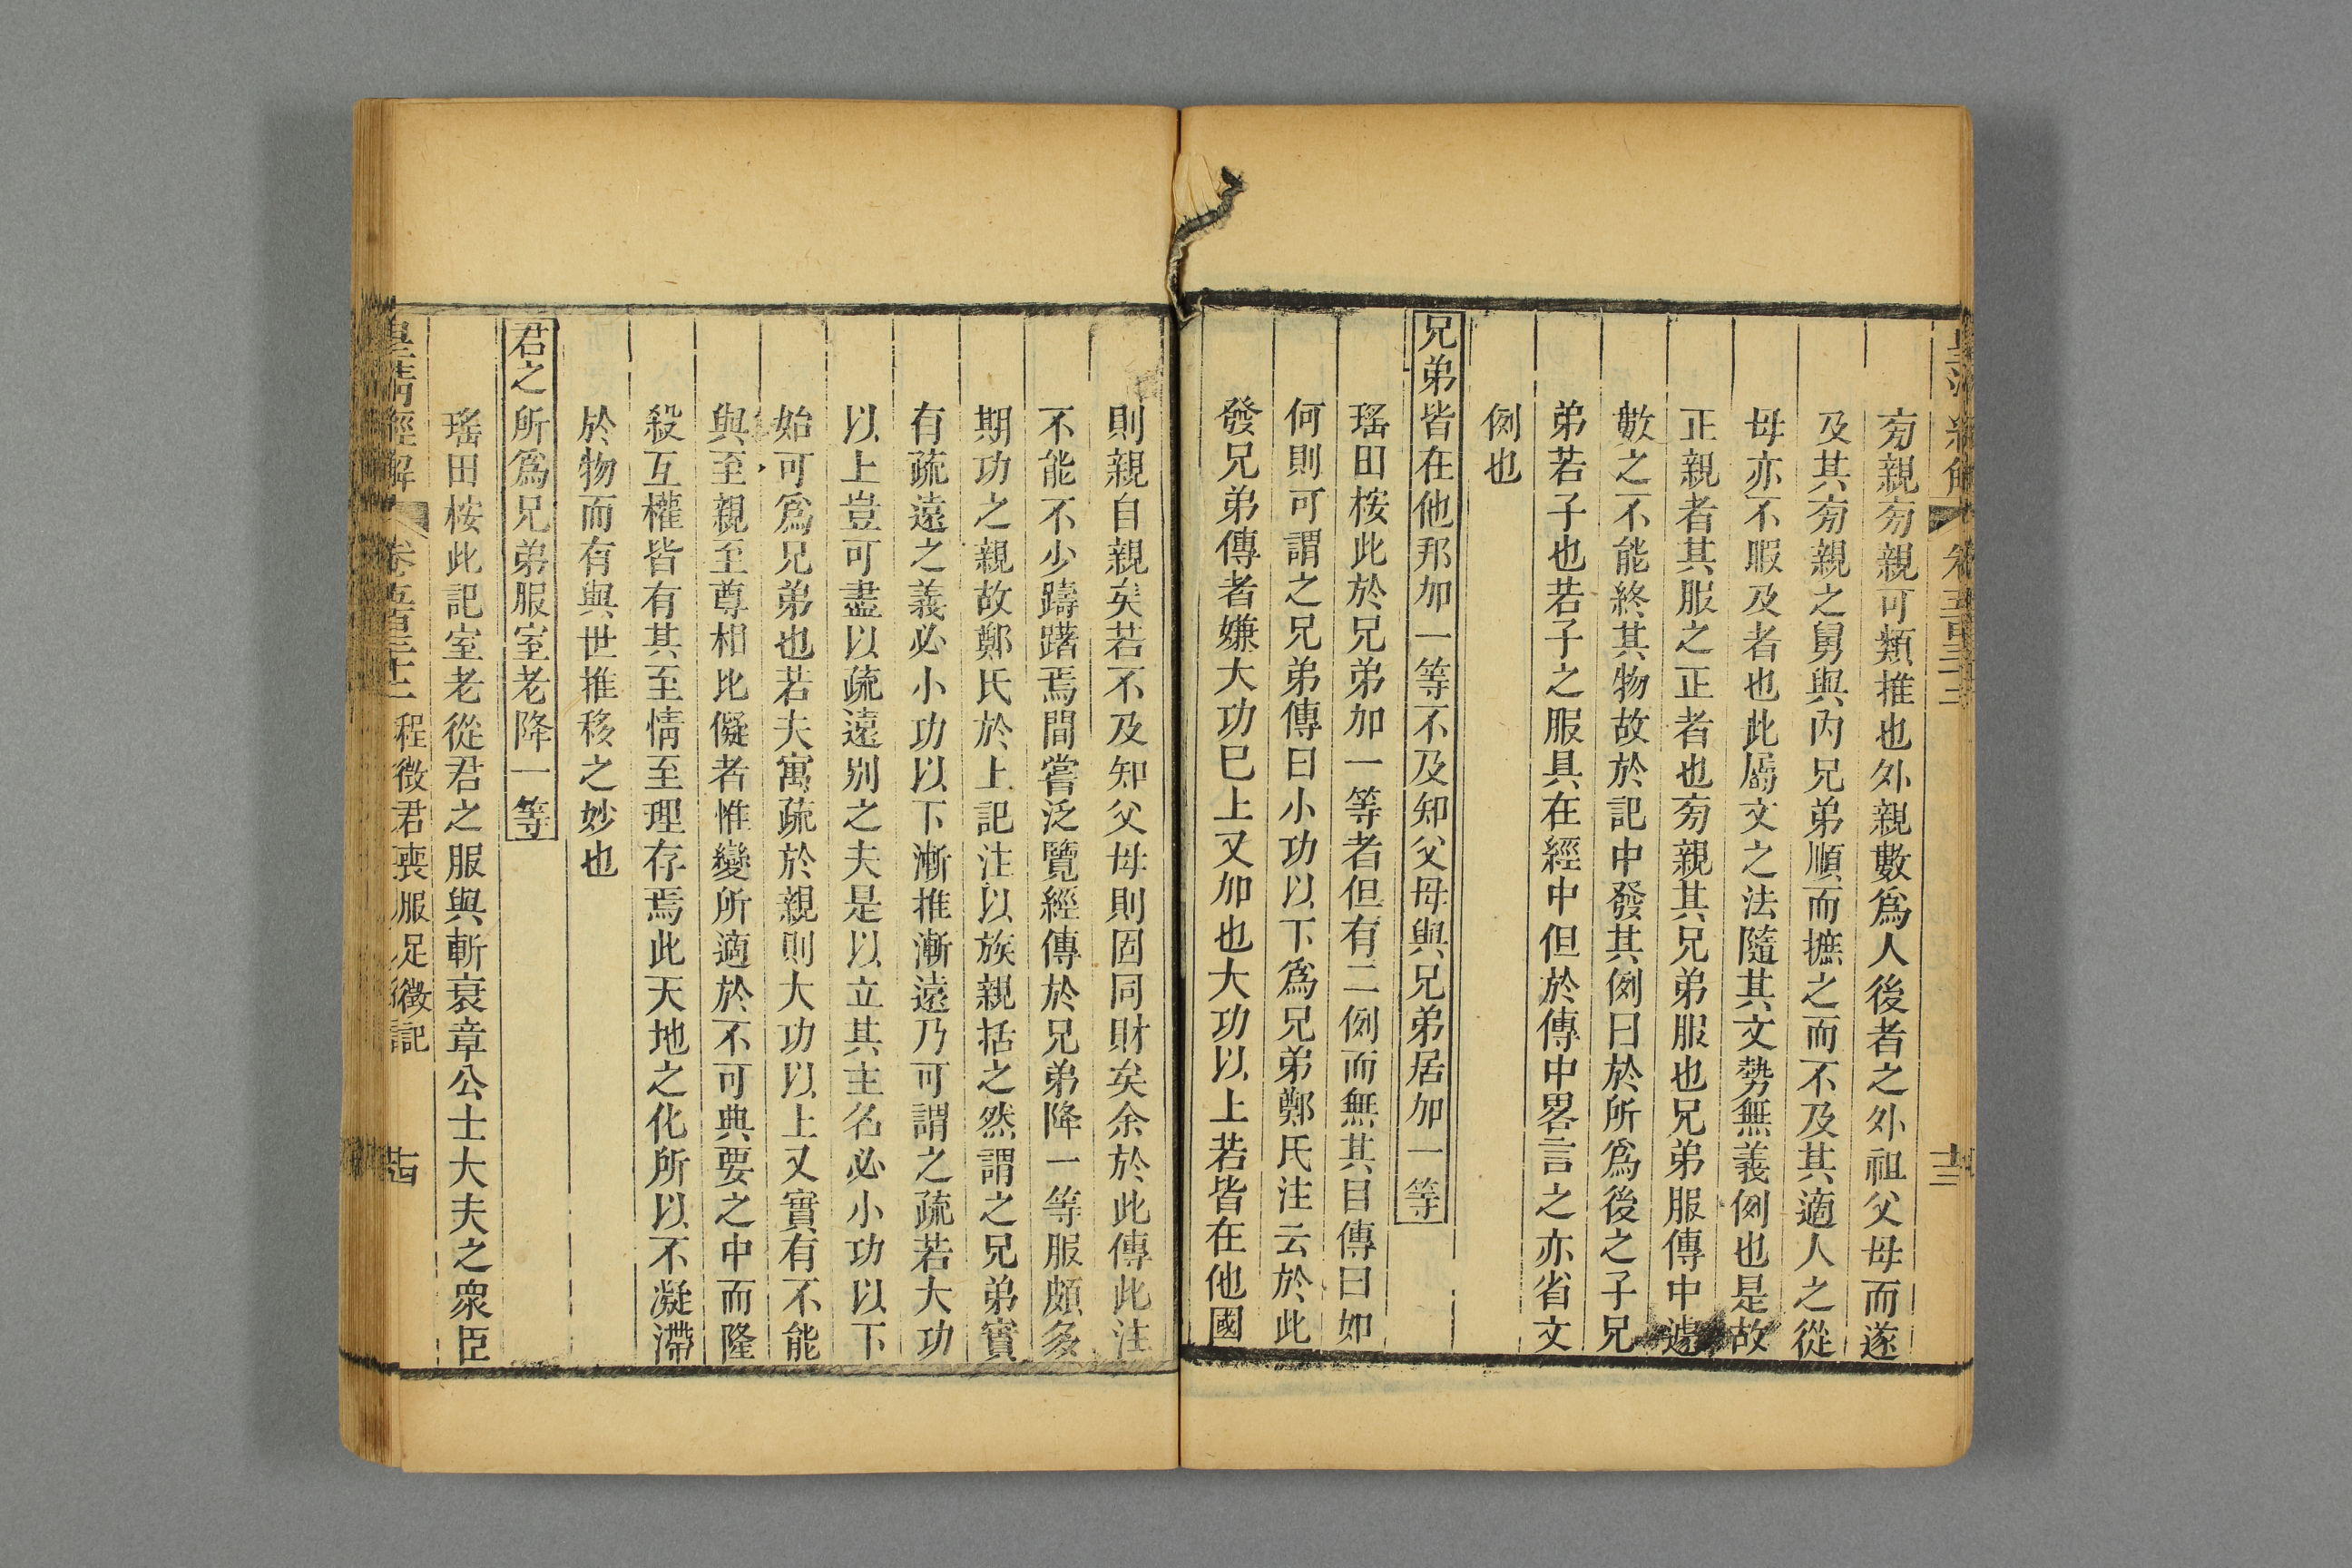 㫄親㫄親可類推也外親數爲人後者之外祖父母而遂
及其㫄親之舅與内兄弟順而摭之而不及其適人之從
母亦不暇及者也此屬文之法隨其文勢無義例也是故
正親者其服之正者也㫄親其兄弟服也兄弟服傳中遽
數之不能終其物故於記中發其例曰於所爲後之子兄
弟若子也若子之服具在經中但於傳中畧言之亦省文
例也
兄弟皆在他邦加一等不及知父母與兄弟居加一等
瑤田桉此於兄弟加一等者但有二例而無其目傳曰如
何則可謂之兄弟傳曰小功以下爲兄弟鄭氏注云於此
發兄弟傳者嫌大功已上又加也大功以上若皆在他國
則親自親矣若不及知父母則固同財矣余於此傳此注
不能不少躊躇焉間嘗泛覽經傳於兄弟降一等服頗多
期功之親故鄭氏於上記注以族親括之然謂之兄弟實
有疏遠之義必小功以下漸推漸遠乃可謂之疏若大功
以上豈可盡以疏遠别之夫是以立其主名必小功以下
始可爲兄弟也若夫寓疏於親則大功以上又實有不能
與至親至尊相比儗者惟變所適於不可典要之中而隆
殺互權皆有其至情至理存焉此天地之化所以不凝滯
於物而有與世推移之妙也
君之所爲兄弟服室老降一等
瑤田桉此記室老從君之服與斬衰章公士大夫之衆臣
皇清經解 卷五百三十二 程徵君喪服足徵記 十四